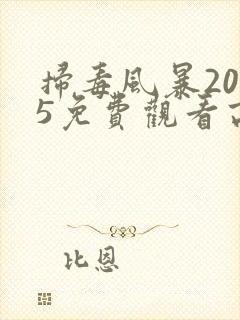 掃毒風暴20
5免費觀看
比恩